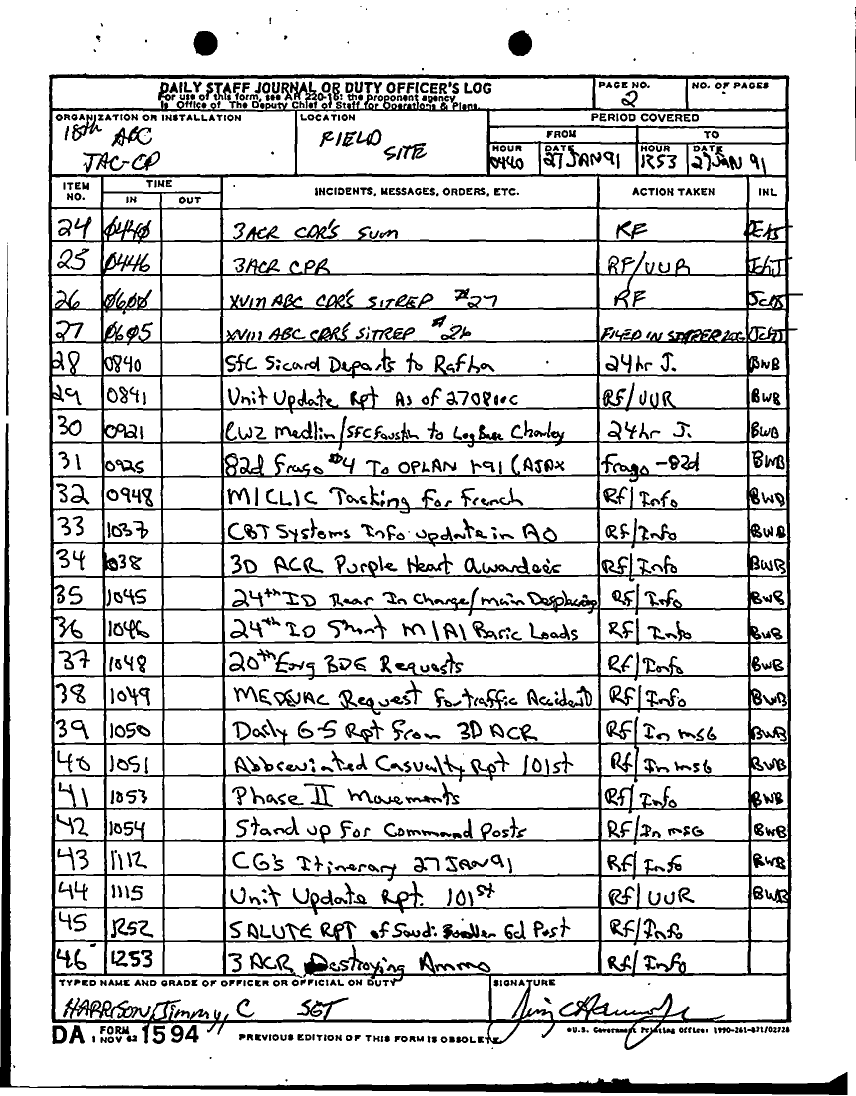 DAILY STAFF JOURNAL OR DUTY OFFICER'S LOG
For use of this form, see AR 220-15; the proponent agency
is Office of The Deputy Chief of Staff for Operations & Plans.
PAGE NO.
2
NO. OF PAGES
ORGANIZATION OR INSTALLATION
18th ABC
JAC-CP
LOCATION
FIELD
SITE
PERIOD COVERED
FROM TO
HOUR DATE HOUR DATE
0440 27 JAN 91 1253 27 JAN 91
ITEM NO. TIME IN OUT INCIDENTS, MESSAGES, ORDERS, ETC. ACTION TAKEN INL
24 0440 3ACR CDR'S SUM RF
25 0446 3ACR CPR RF/UUR
26 0600 XVIII ABC CDR'S SITREP #27 RF
27 0605 XVIII ABC CDR'S SITREP #26 FILED IN
28 0840 SFC Sicard Departs to Rafha 24hr J. BWB
29 0841 Unit Update Rpt As of 270810C RF/UUR BWB
30 0921 CW2 Medlin/SFC Faustin to Log Base Charley 24hr J. BWB
31 0925 82d Frago #4 To OPLAN 1-91 (AJAX Frago-82d BWB
32 0948 MICLIC Tasking For French Rf/Info BWB
33 1037 CBT Systems Info update in AO Rf/Info BWB
34 1038 3D ACR Purple Heart Awardees Rf/Info BWB
35 1045 24th ID Rear In Charge/main Desplacing Rf/Info BWB
36 1046 24th ID Short M1A1 Basic Loads Rf/Info BWB
37 1048 20th Eng BDE Requests Rf/Info BWB
38 1049 MEDEVAC Request for traffic Accident Rf/Info BWB
39 1050 Daily G-5 Rpt From 3D ACR Rf/In msG BWB
40 1051 Abbreviated Casualty Rpt 101st Rf/In msG BWB
41 1053 Phase II Movements Rf/Info BWB
42 1054 Stand up For Command Posts Rf/In msG BWB
43 1112 CG's Itinerary 27JAN91 Rf/Info BWB
44 1115 Unit Update Rpt. 101st Rf/UUR BWB
45 1252 SALUTE RPT of Saudi Gd Post Rf/Info
46 1253 3 ACR Destroying Ammo Rf/Info
TYPED NAME AND GRADE OF OFFICER OR OFFICIAL ON DUTY
HARRISON, Jimmy, C SGT
SIGNATURE
DA FORM 1 NOV 62 1594 PREVIOUS EDITION OF THIS FORM IS OBSOLETE
*U.S. Government Printing Office: 1990-261-871/02728